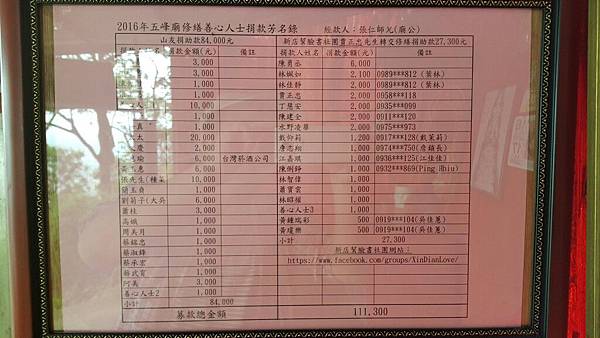 2016年五峰廟修繕善心人士捐款芳名錄 經款人：張仁師兄(廟公)
山友捐助款84,000元 新店幫臉書社團賈正忠先生轉交修繕捐助款27,300元
捐款金額(元) 備註 捐款人姓名 捐款金額(元) 備註
3,000 陳勇丞 6,000
3,000 林姵如 2,100 0989***812 (葉林)
1,000 林佳靜 2,000 0989***812 (葉林)
3,000 賈正忠 2,000 0958***118
人 10,000 丁慧安 2,000 0935***099
1,000 陳建全 2,000 0911***120
真 1,000 水野凌華 2,000 0975***973
太 20,000 戴仰莉 1,200 0917***128(戴茉莉)
慶 2,000 唐志翔 1,000 0974***750(詹鎮長)
瑜 6,000 台灣菸酒公司 江嘉琪 1,000 0936***125(江佳佳)
惠 1,000 陳俐錚 1,000 0932***869(Ping Hhiu)
張先生(種菜 10,000 林智偉 1,000
簡玉貞 1,000 蕭寶雲 1,000
劉菊子(大吳 6,000 林昭耀 1,000
蕭桂 3,000 善心人士3 1,000
高娥 1,000 黃鍾瑞彩 500 0919***104(吳佳蕙)
周美月 1,000 黃瓊樂 500 0919***104(吳佳蕙)
蔡銘忠 1,000 小計 27,300
蔡淑鋒 1,000 新店幫臉書社團網站：
蔡承宏 1,000 https://www.facebook.com/groups/XinDianLove/
蔡武育 1,000
阿美 3,000
善心人士2 1,000
小計 84,000
募款總金額 111,300